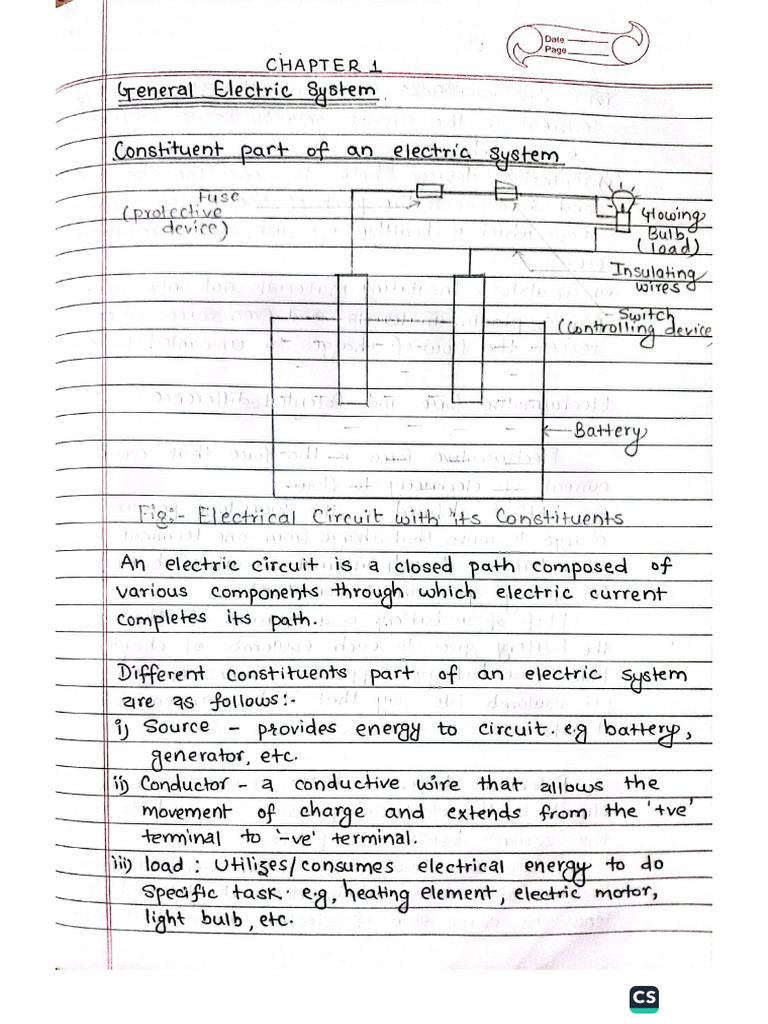 Date
Page
CHAPTER 1
General Electric System
Constituent part of an electric system
Fuse
(protective
device)
Glowing
Bulb
(load)
Insulating
wires
Switch
(Controlling device
Battery
Fig:- Electrical Circuit with its Constituents
An electric circuit is a closed path composed of
various components through which electric current
completes its path.
Different constituents part of an electric system
are as follows:-
i) Source - provides energy to circuit. e.g battery,
generator, etc.
ii) Conductor - a conductive wire that allows the
movement of charge and extends from the '+ve'
terminal to '-ve' terminal.
iii) load : Utilizes/consumes electrical energy to do
Specific task. e.g, heating element, electric motor,
light bulb, etc.
CS